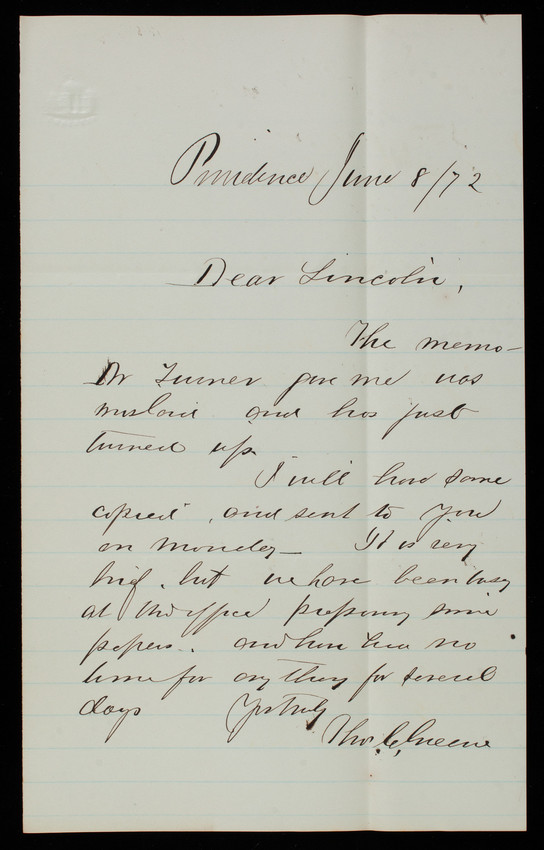 Providence June 8/72
Dear Lincoln,
The memo-
Dr Turner gave me was
mislaid and has just
turned up.
I will have some
copied, and sent to you
on Monday— It is very
brief, but we have been busy
at the office preparing some
papers—. and have had no
time for any thing for several
days Yrs truly
Thos. C. Greene